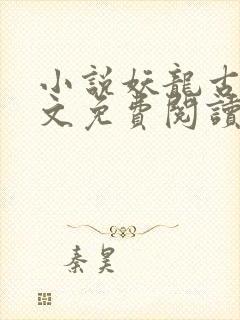 小說妖龍古
文免費閱讀
秦昊